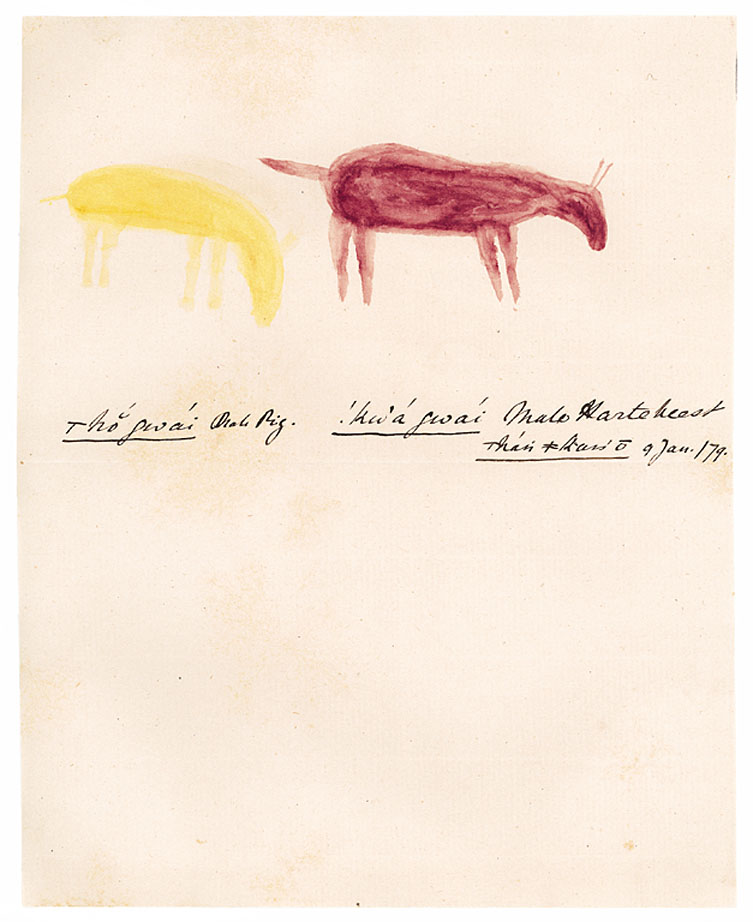 ⊤hŏ́ gwái Male Pig. !kw'á gwái Male Hartebeest
⊤háṅ ǂkass'ō 9 Jan./79.